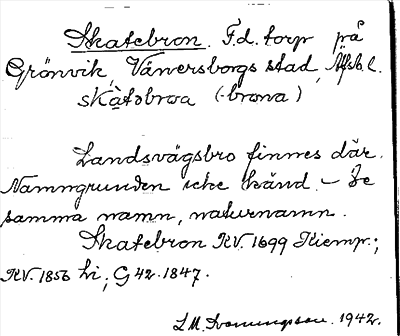 Skatebron. F.d. torp på
Grönvik, Vänersborgs stad, Älfsb. l.
skàtəbroa (-brona)
Landsvägsbro finnes där.
Namngrunden icke känd. – Se
samma namn, naturnamn.
Skatebron KV. 1699 Kiemp.;
KV. 1856 hi; G 42. 1847.
1942.